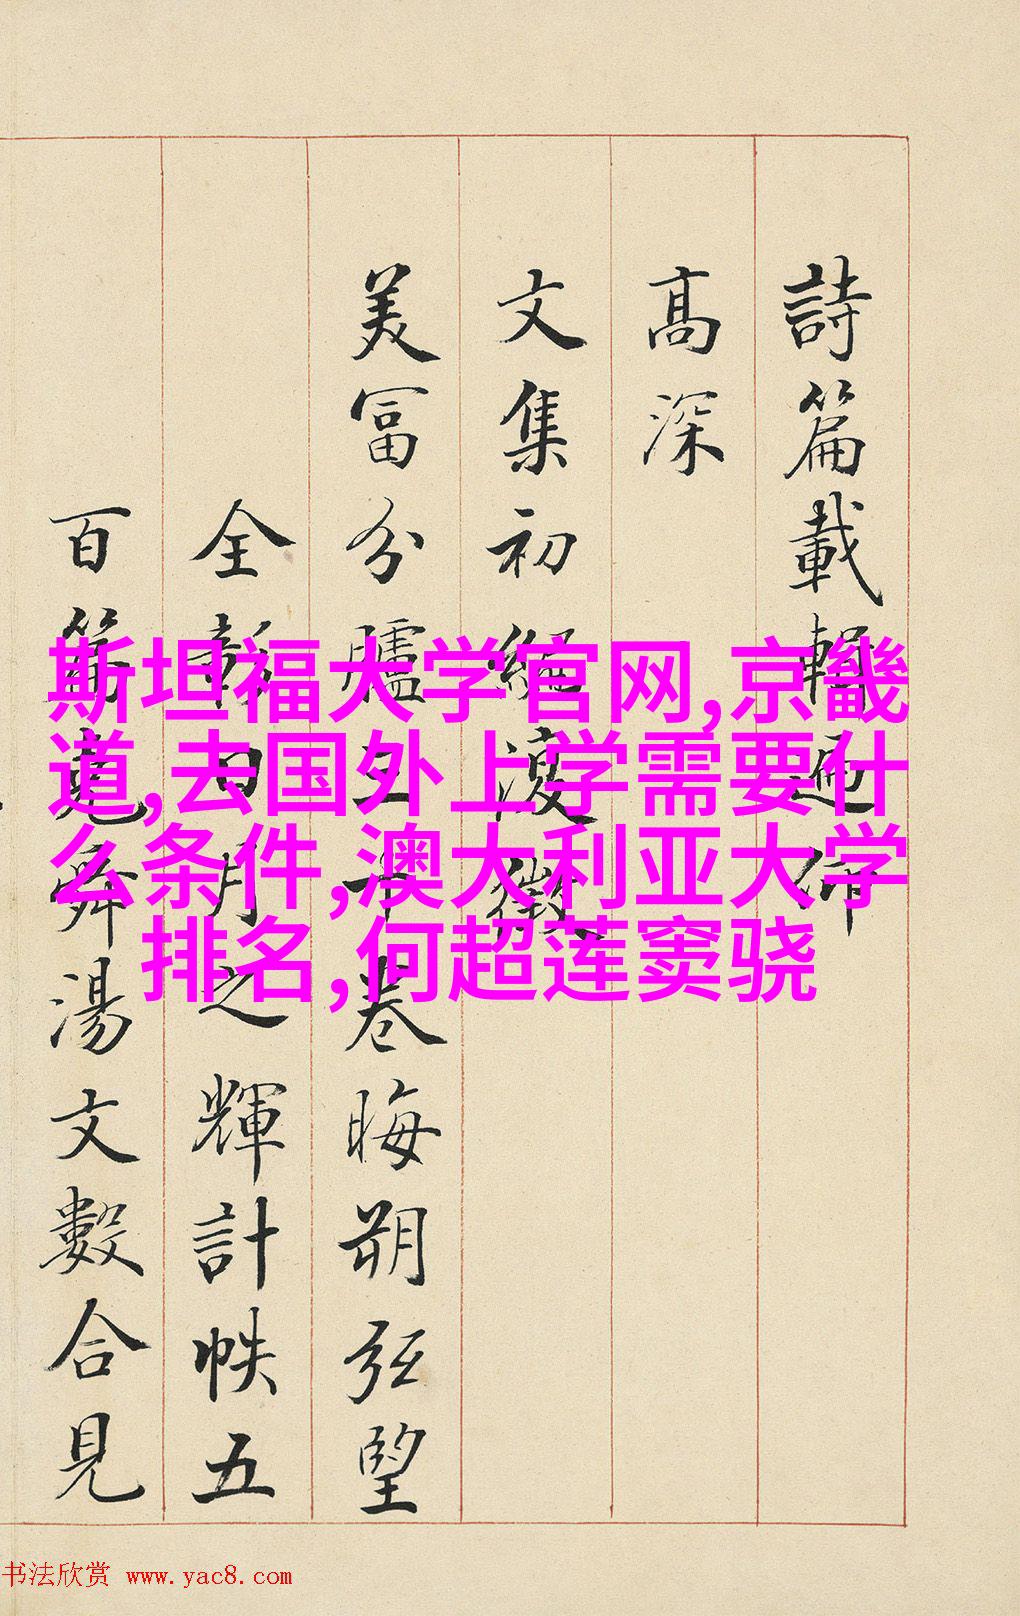 詩篇載輯
髙深
文集初
美冨分臚五卷晦朔弦望
全彰日月之輝計帙五
百篇堯舜湯文數合見
斯坦福大学官网,京畿
道,去国外上学需要什
么条件,澳大利亚大学
排名,何超莲窦骁
书法欣赏 www.yac8.com